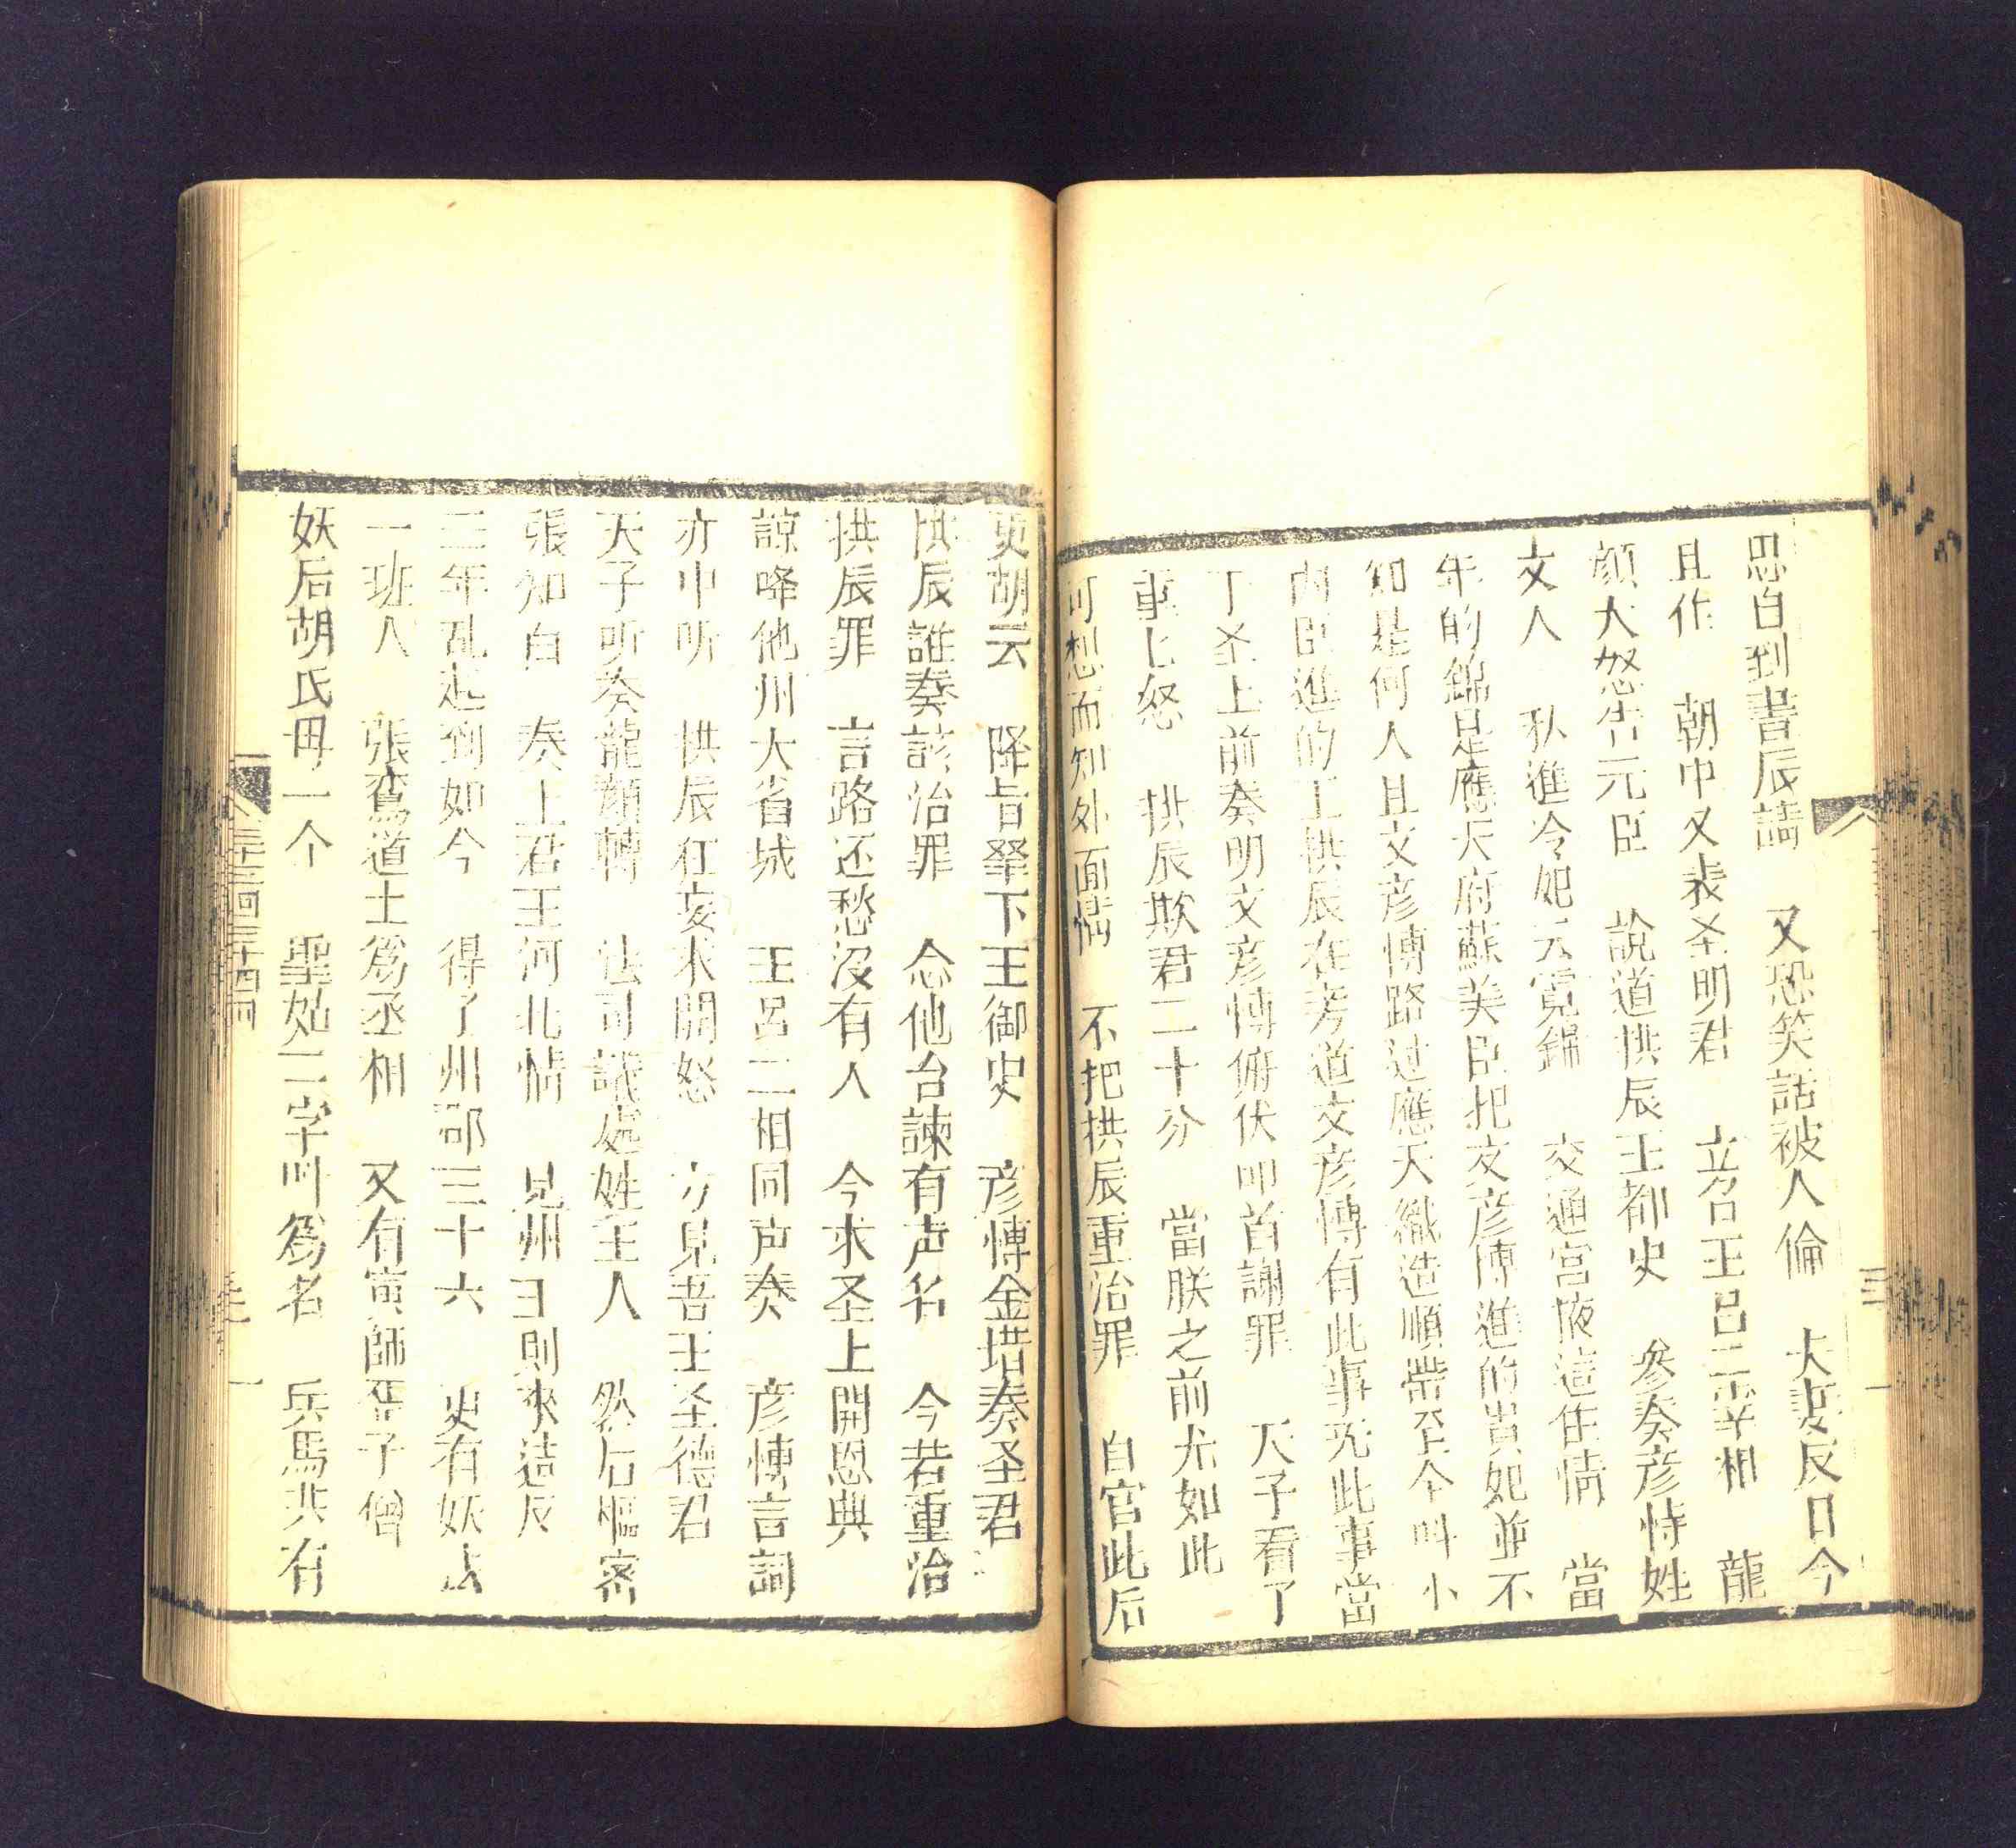 思自到書辰請　又恐笑話被人倫　夫妻反日今
且作　朝中又表圣明君　立召王吕二宰相　龍
顔大怒告元臣　說道拱辰王都史　參奏彦愽姓
文人　私進令妃云霓錦　交通宫掖這住情　當
年的錦是應天府蘇美臣把文彦博進的貴妃並不
知是何人且文彦博路过應天織造順帶至今叫小
内臣進的王拱辰在旁道文彦博有此事无此事當
丁圣上前奏明文彦博俯伏叩首謝罪　天子看了
事上怒　拱辰欺君二十分　當朕之前尤如此
可想而知外面情　不把拱辰重治罪　自官此后
更胡云　降旨拏下王御史　彦愽金堦奏圣君
拱辰誰奏該治罪　念他台諫有声名　今若重治
拱辰罪　言路还愁没有人　今求圣上開恩典
諒降他州大省城　王呂二相同声奏　彦愽言詞
亦中听　拱辰狂妄求開怒　方見吾王圣德君
天子听奏龍顔轉　法司議處姓王人　然后樞密
張知白　奏上君王河北情　見州王則來造反
三年乱起到如今　得了州郡三十六　更有妖
一班人　張鸞道士為丞相　又有寅師蛋子僧
妖后胡氏毋一个　聖姑二字叫為名　兵馬共有
三十三回三十四回